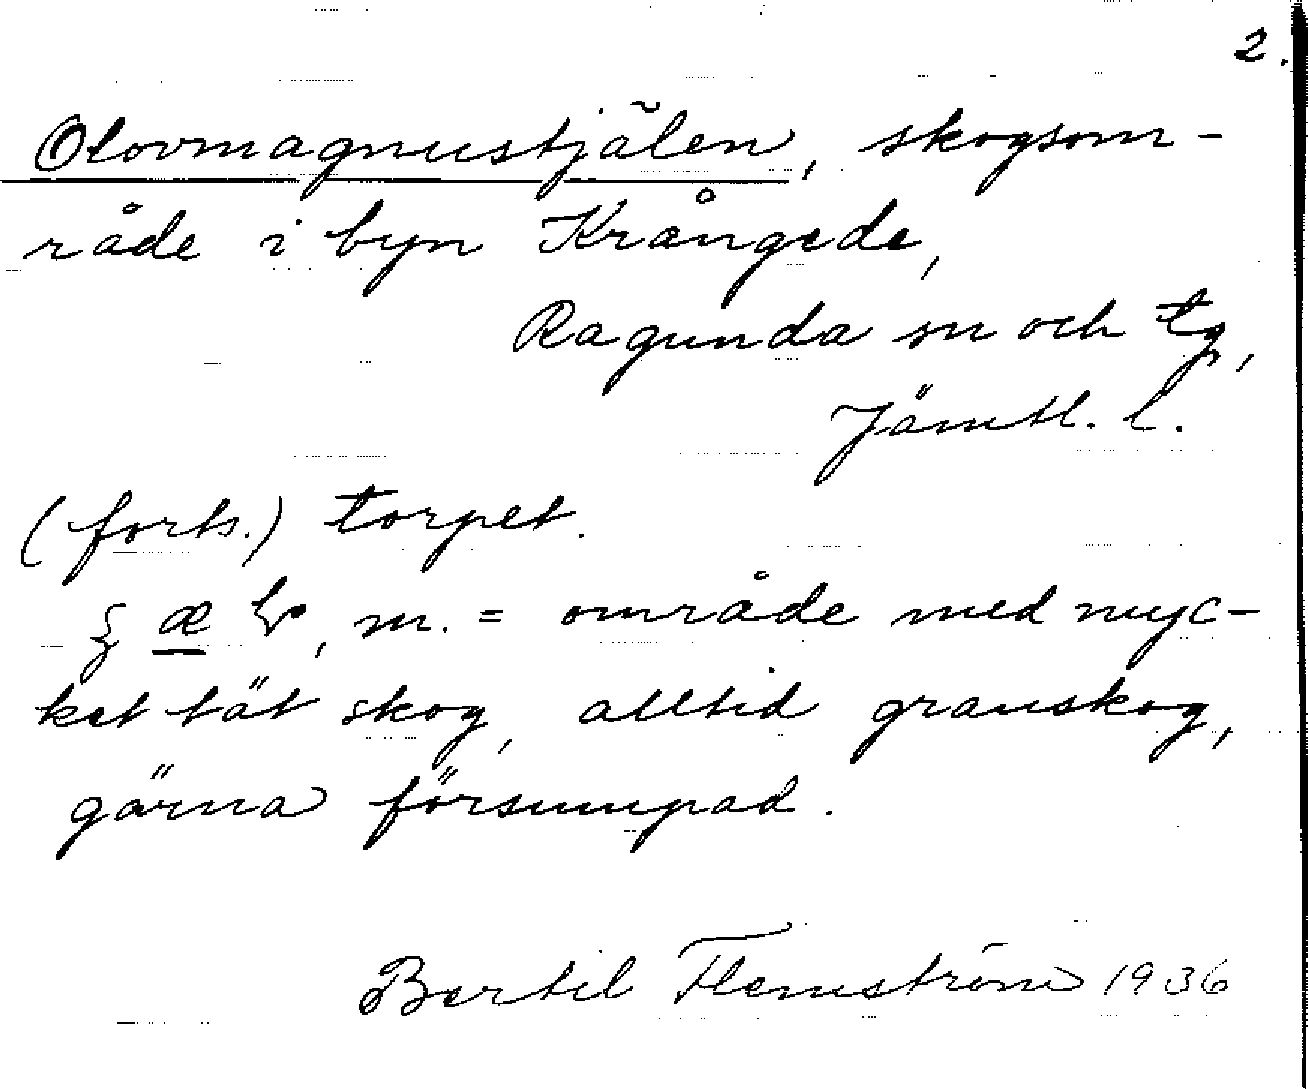 2.
Olovmagnustjälen, skogsom-
råde i byn Krångede,
Ragunda sn och tg,
Jämtl. l.
(forts.) torpet.
æ , m. = område med myc-
ket tät skog, alltid granskog,
gärna försumpad.
Bertil Flemström 1936